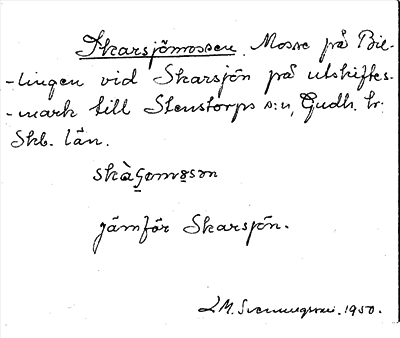 Skarsjömossen. Mosse på Bil-
-lingen vid Skarsjön på utskiftes-
-mark till Stenstorps s:n, Gudh. hr.
Skb. län.
skàgomosən
jämför Skarsjön.
L M. Svenungsson. 1950.